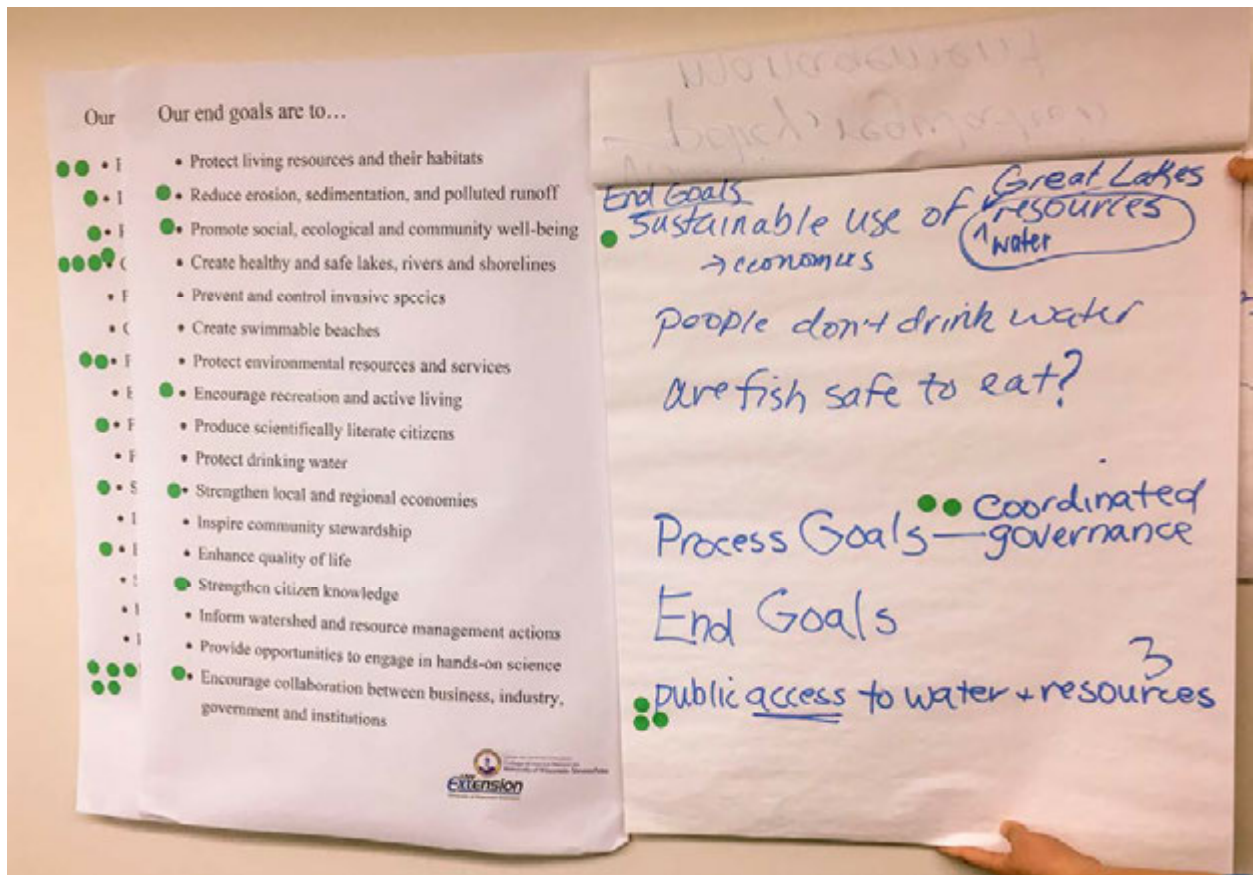 Our
Our end goals are to...
• Protect living resources and their habitats
• Reduce erosion, sedimentation, and polluted runoff
• Promote social, ecological and community well-being
• Create healthy and safe lakes, rivers and shorelines
• Prevent and control invasive species
• Create swimmable beaches
• Protect environmental resources and services
• Encourage recreation and active living
• Produce scientifically literate citizens
• Protect drinking water
• Strengthen local and regional economies
• Inspire community stewardship
• Enhance quality of life
• Strengthen citizen knowledge
• Inform watershed and resource management actions
• Provide opportunities to engage in hands-on science
• Encourage collaboration between business, industry,
government and institutions
Extension
End Goals
Great Lakes
Sustainable use of resources
^water
→ economies
people don't drink water
are fish safe to eat?
Process Goals — coordinated
governance
End Goals
3
public access to water + resources